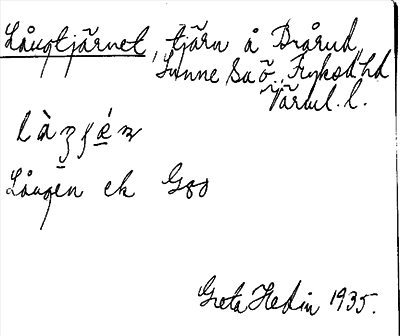 Långtjärnet, tjärn å Brårud,
Sunne sn, Fryksd. hd
Värml. l.
Långe̱n ek G80
Greta Hedin 1935.